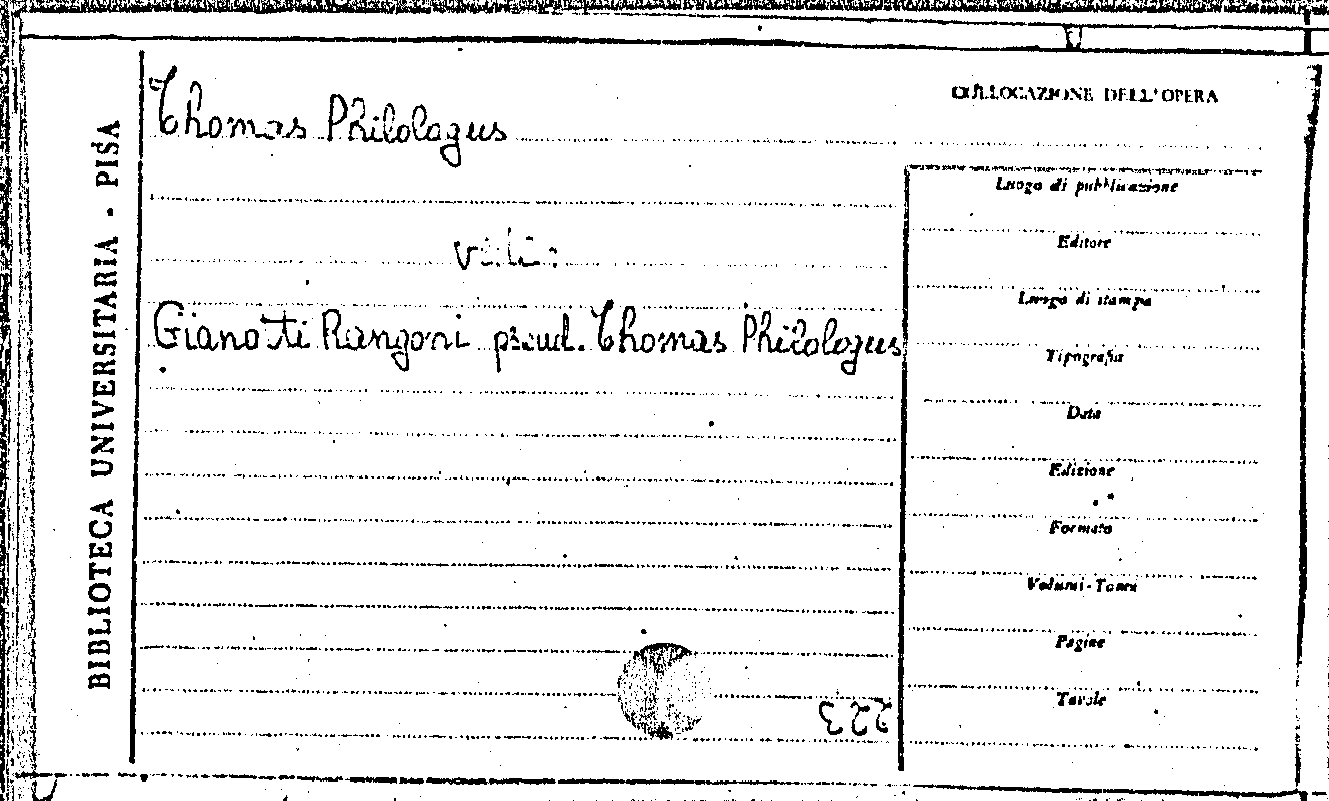 BIBLIOTECA UNIVERSITARIA - PISA
Thomas Philologus
Gianotti Rangoni pseud. Thomas Philologus
223
COLLOCAZIONE DELL'OPERA
Luogo di pubblicazione
Editore
Luogo di stampa
Tipografia
Data
Edizione
Formato
Volumi - Tomi
Pagine
Tavole